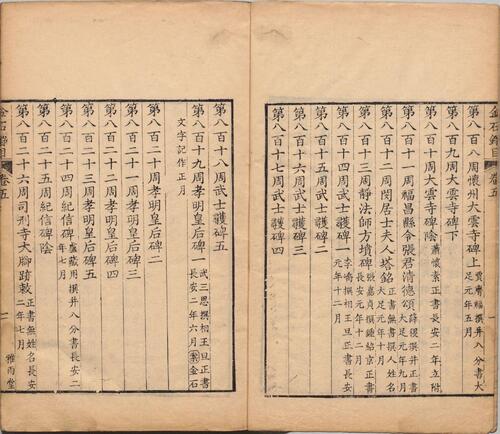 金石錄目 卷五 一
第八百八周懷州大雲寺碑上 賈膺福撰并八分書大
足元年五月
第八百九周大雲寺碑下
第八百十周大雲寺碑陰 蕭懷素正書長安二年立附
第八百十一周福昌縣令張君清德頌 薛稷撰并正書
大足元年九月
第八百十二周閻居士夫人塔銘 正書無書撰人姓名
大足元年十月
第八百十三周靜法師方墳碑 張嘉貞撰鍾紹京正書
長安元年十二月
第八百十四周武士彠碑一 李嶠撰相王旦正書長安
元年十二月
第八百十五周武士彠碑二
第八百十六周武士彠碑三
第八百十七周武士彠碑四
第八百十八周武士彠碑五
第八百十九周孝明皇后碑一 武三思撰相王旦正書
長安二年六月 案金石
文字記作正月
第八百二十周孝明皇后碑二
第八百二十一周孝明皇后碑三
第八百二十二周孝明皇后碑四
第八百二十三周孝明皇后碑五
第八百二十四周紀信碑 盧藏用撰并八分書長安二
年七月
第八百二十五周紀信碑陰
第八百二十六周司刑寺大腳蹟敕 正書無姓名長安
二年七月
金石錄目 卷五 一 雅雨堂